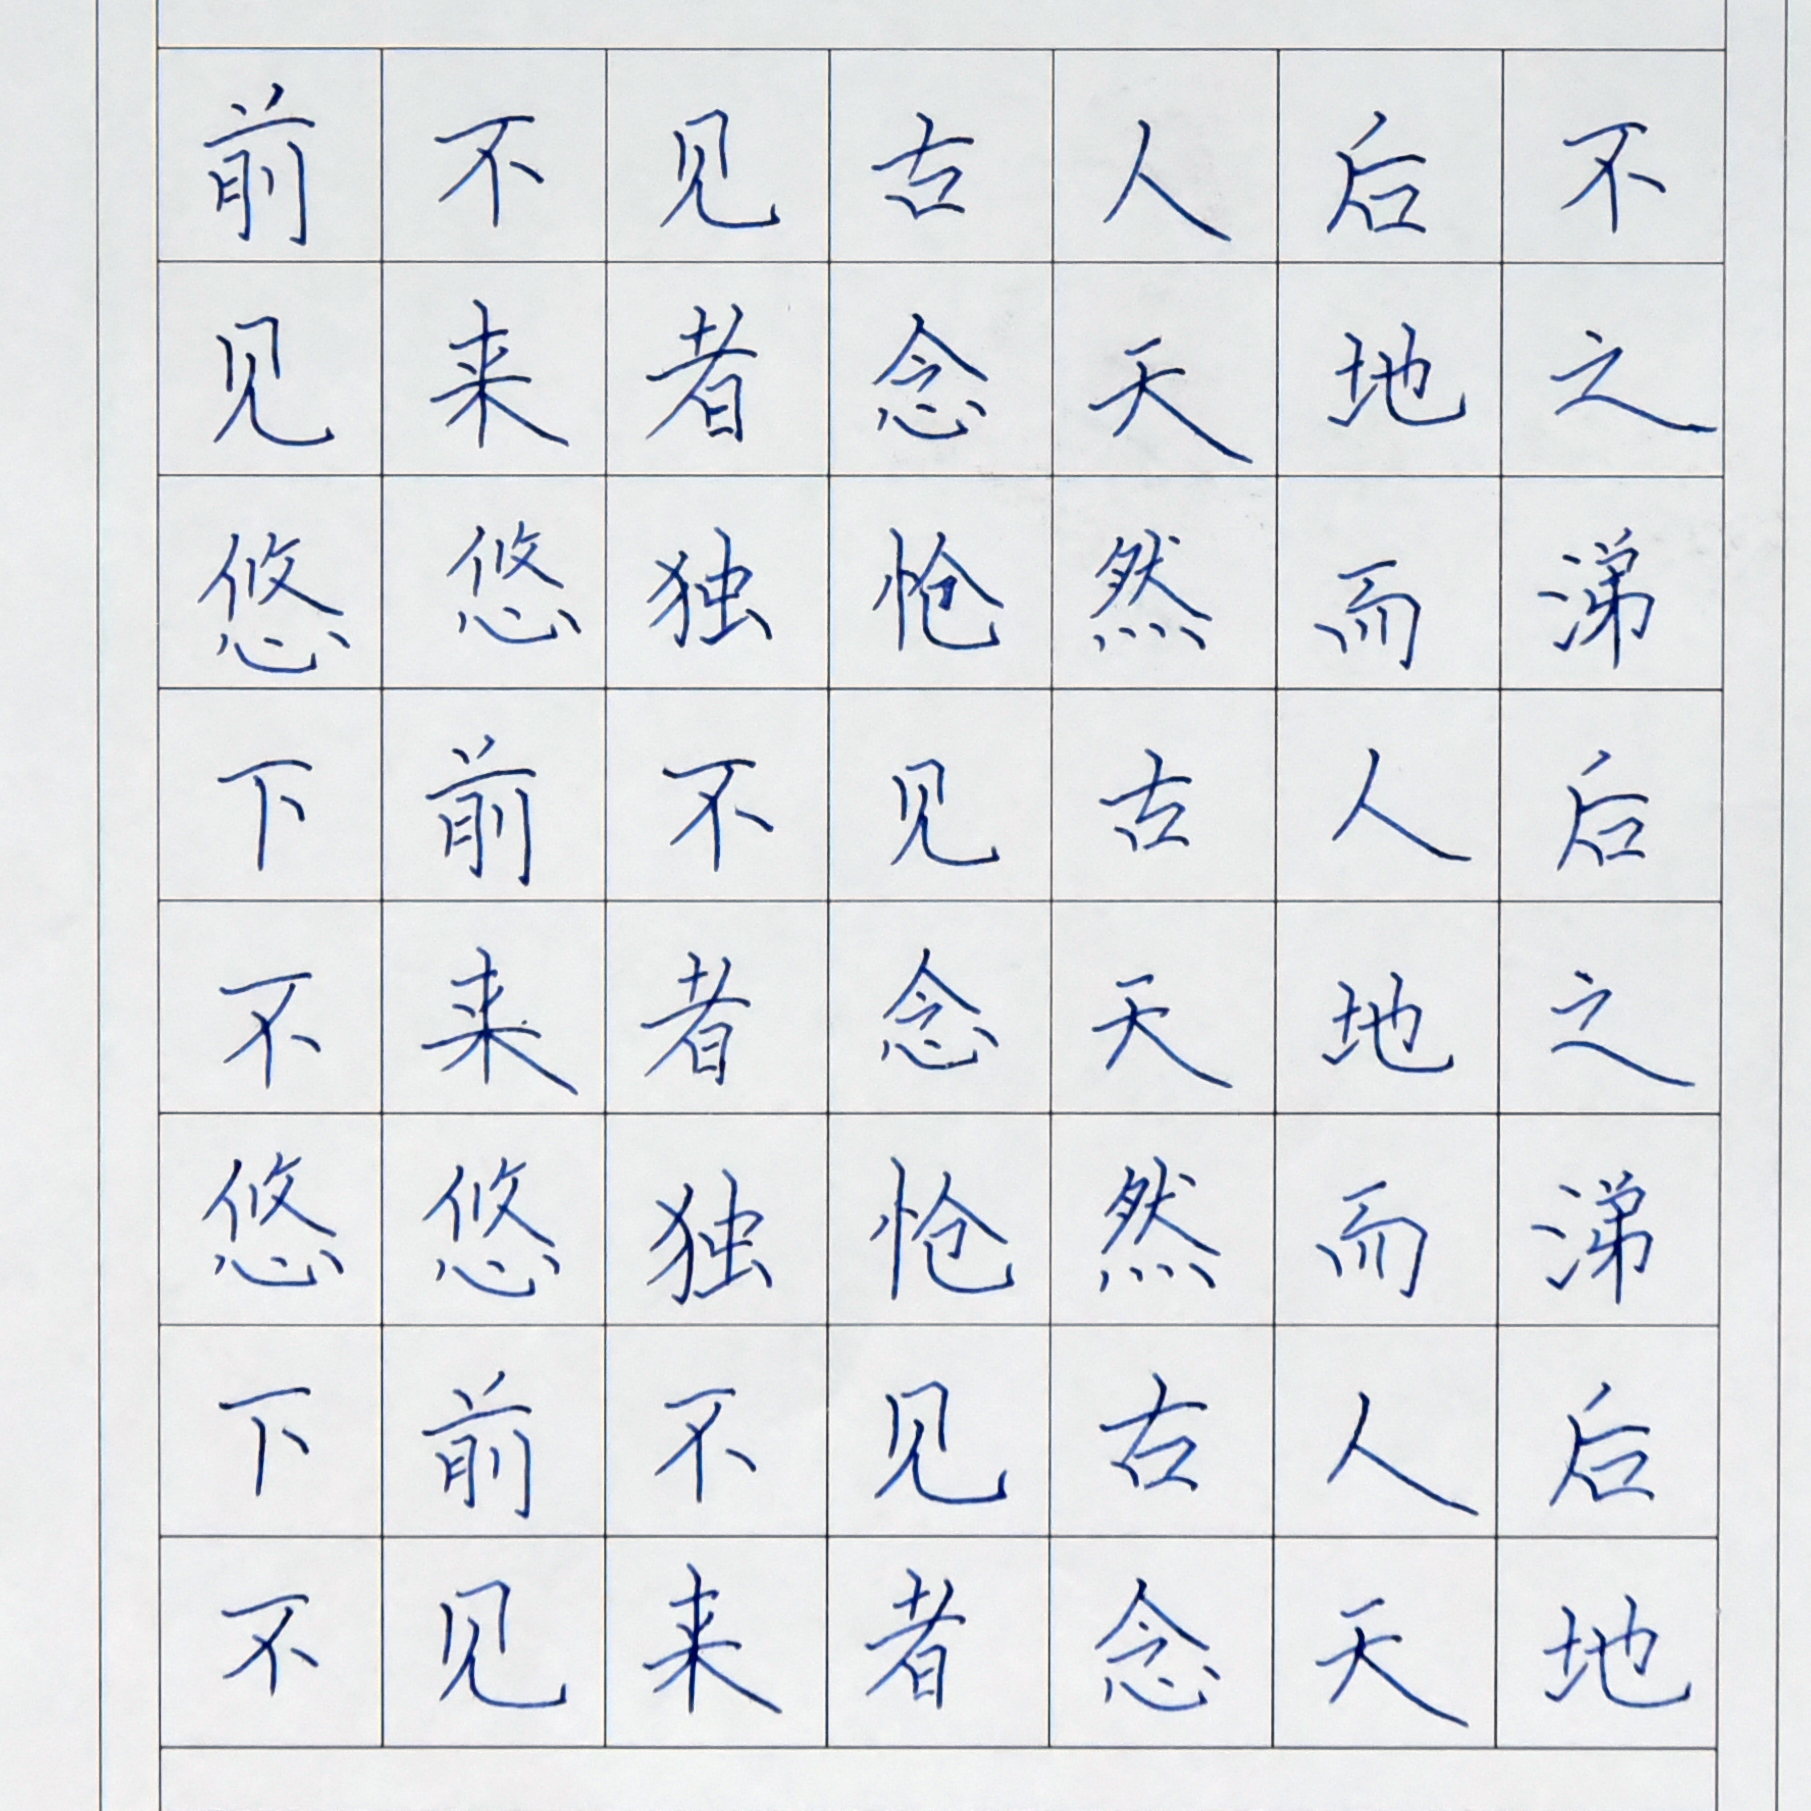 前不见古人后不
见来者念天地之
悠悠独怆然而涕
下前不见古人后
不来者念天地之
悠悠独怆然而涕
下前不见古人后
不见来者念天地